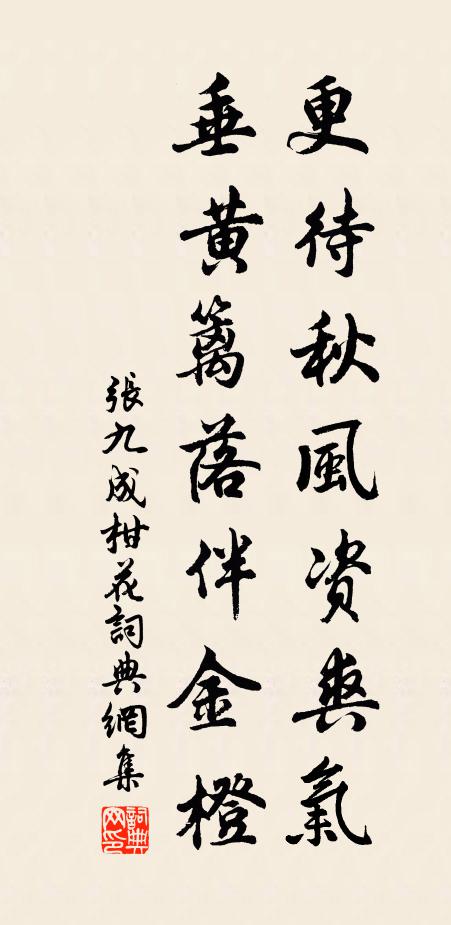 更待秋風資爽氣
垂黃籬落伴金橙
張九成柑花詞典網集
詞典
网印